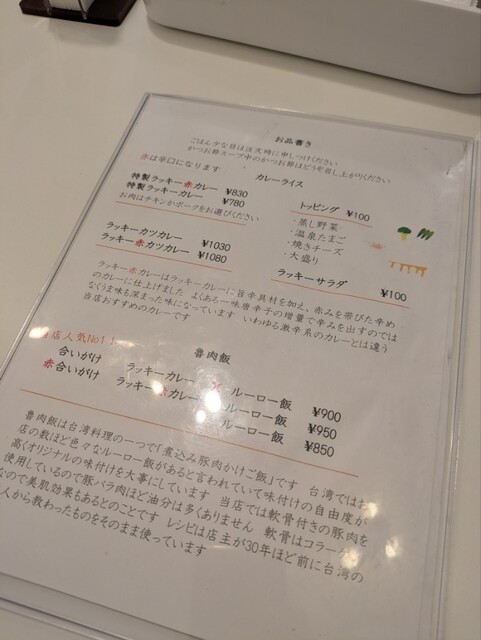 お品書き
ごはん少な目は注文時に申しつけください
かつお節スープ中のかつお節はどうぞ召し上がりください
赤は辛口になります
カレーライス
特製ラッキー赤カレー ¥830
特製ラッキーカレー ¥780
お肉はチキンかポークをお選びください
ラッキーカツカレー ¥1030
ラッキー赤カツカレー ¥1080
トッピング ¥100
・蒸し野菜
・温泉たまご
・焼きチーズ
・大盛り
ラッキーサラダ ¥100
ラッキー赤カレーはラッキーカレーに旨辛具材を加え、赤みを帯びた辛め
のカレーに仕上げました よくある一味唐辛子の増量で辛みを出すのでは
なくうま味も深まった味になっています いわゆる激辛系のカレーとは違う
当店おすすめのカレーです
当店人気No1!
魯肉飯
合いがけ ラッキーカレー × ルーロー飯 ¥900
赤合いがけ ラッキー赤カレー ルーロー飯 ¥950
ルーロー飯 ¥850
魯肉飯は台湾料理の一つで「煮込み豚肉かけご飯」です 台湾ではお
店の数ほど色々なルーロー飯があると言われていて味付けの自由度が
高くオリジナルの味付けを大事にしています 当店では軟骨付きの豚肉を
使用しているので豚バラ肉ほど油分は多くありません 軟骨はコラーゲン
なので美肌効果もあるとのことです レシピは店主が30年ほど前に台湾の
人から教わったものをそのまま使っています